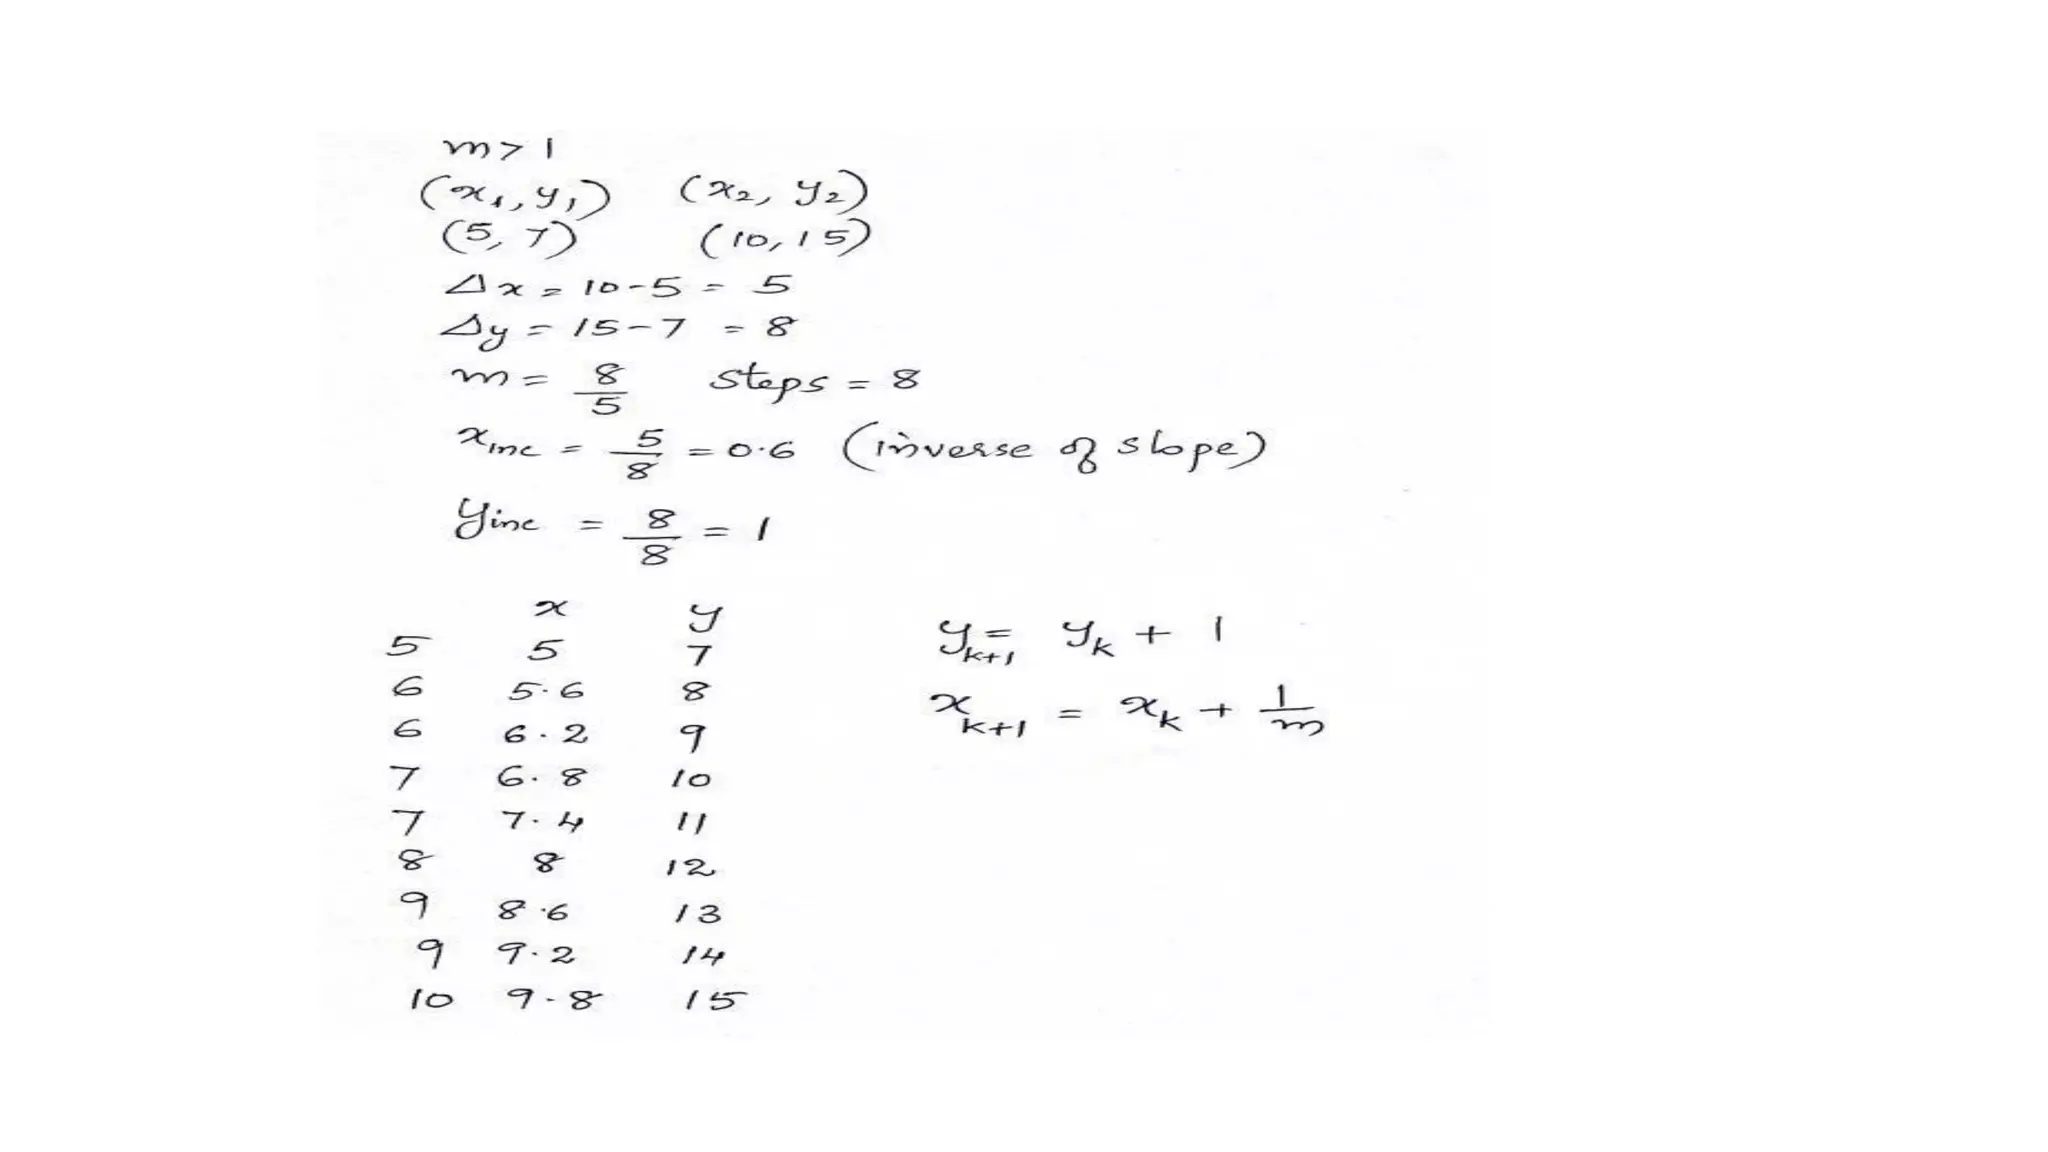 m > 1
(x1, y1) (x2, y2)
(5, 7) (10, 15)
Δx = 10 - 5 = 5
Δy = 15 - 7 = 8
m = 8/5 steps = 8
xinc = 5/8 = 0.6 (inverse of slope)
yinc = 8/8 = 1
x y
5 5 7
6 5.6 8
6 6.2 9
7 6.8 10
7 7.4 11
8 8 12
9 8.6 13
9 9.2 14
10 9.8 15
yk+1 = yk + 1
xk+1 = xk + 1/m